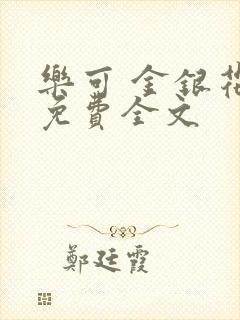 樂可 金銀花
免費全文
鄭廷霞